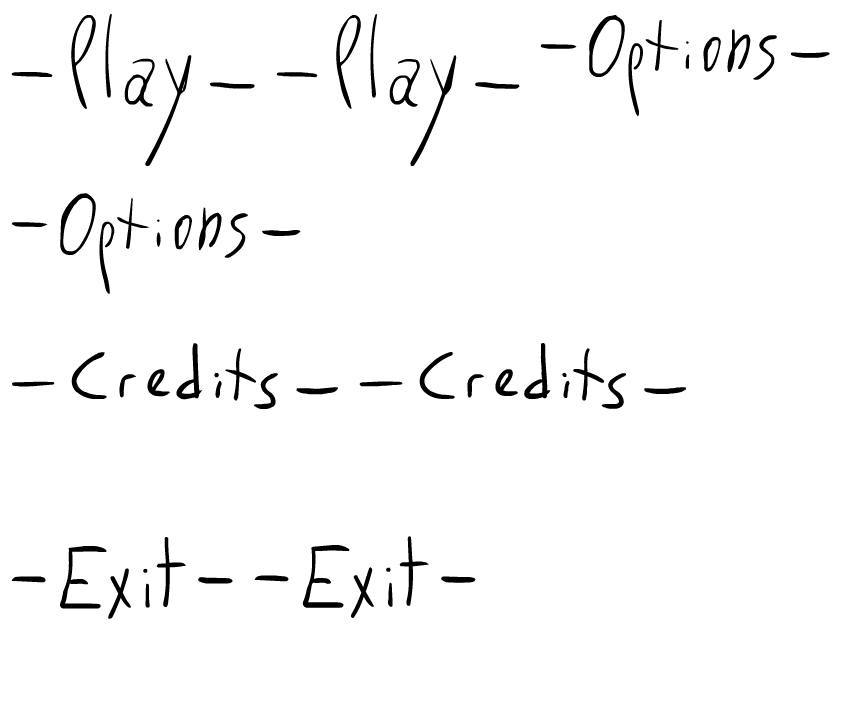 -Play- -Play- -Options-
-Options-
-Credits- -Credits-
-Exit- -Exit-